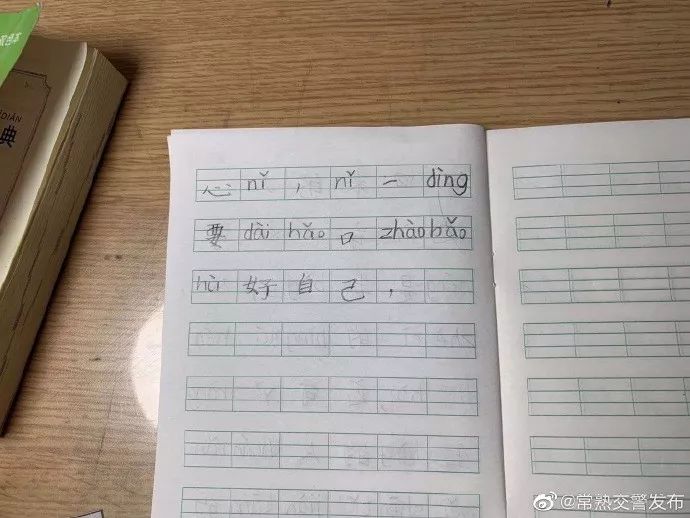 DIǍN
典
心 nǐ ， nǐ 一 dìng
要 dài hǎo 口 zhào bǎo
hù 好 自 己 ，
@常熟交警发布